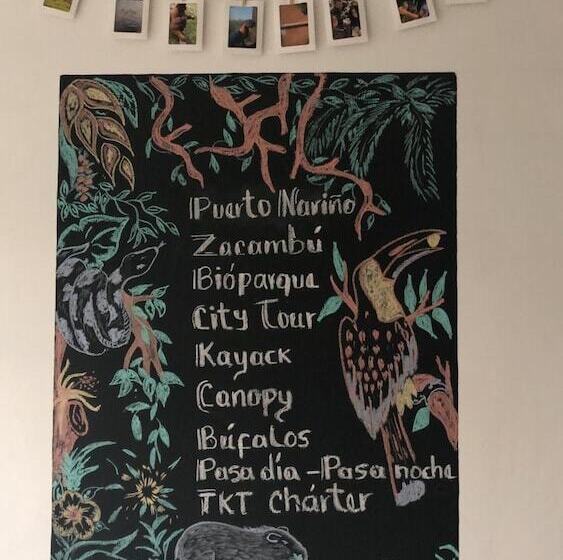 Puerto Nariño
Zacambú
Bióparque
City Tour
Kayack
Canopy
Búfalos
Pasa día - Pasa noche
TKT Chárter